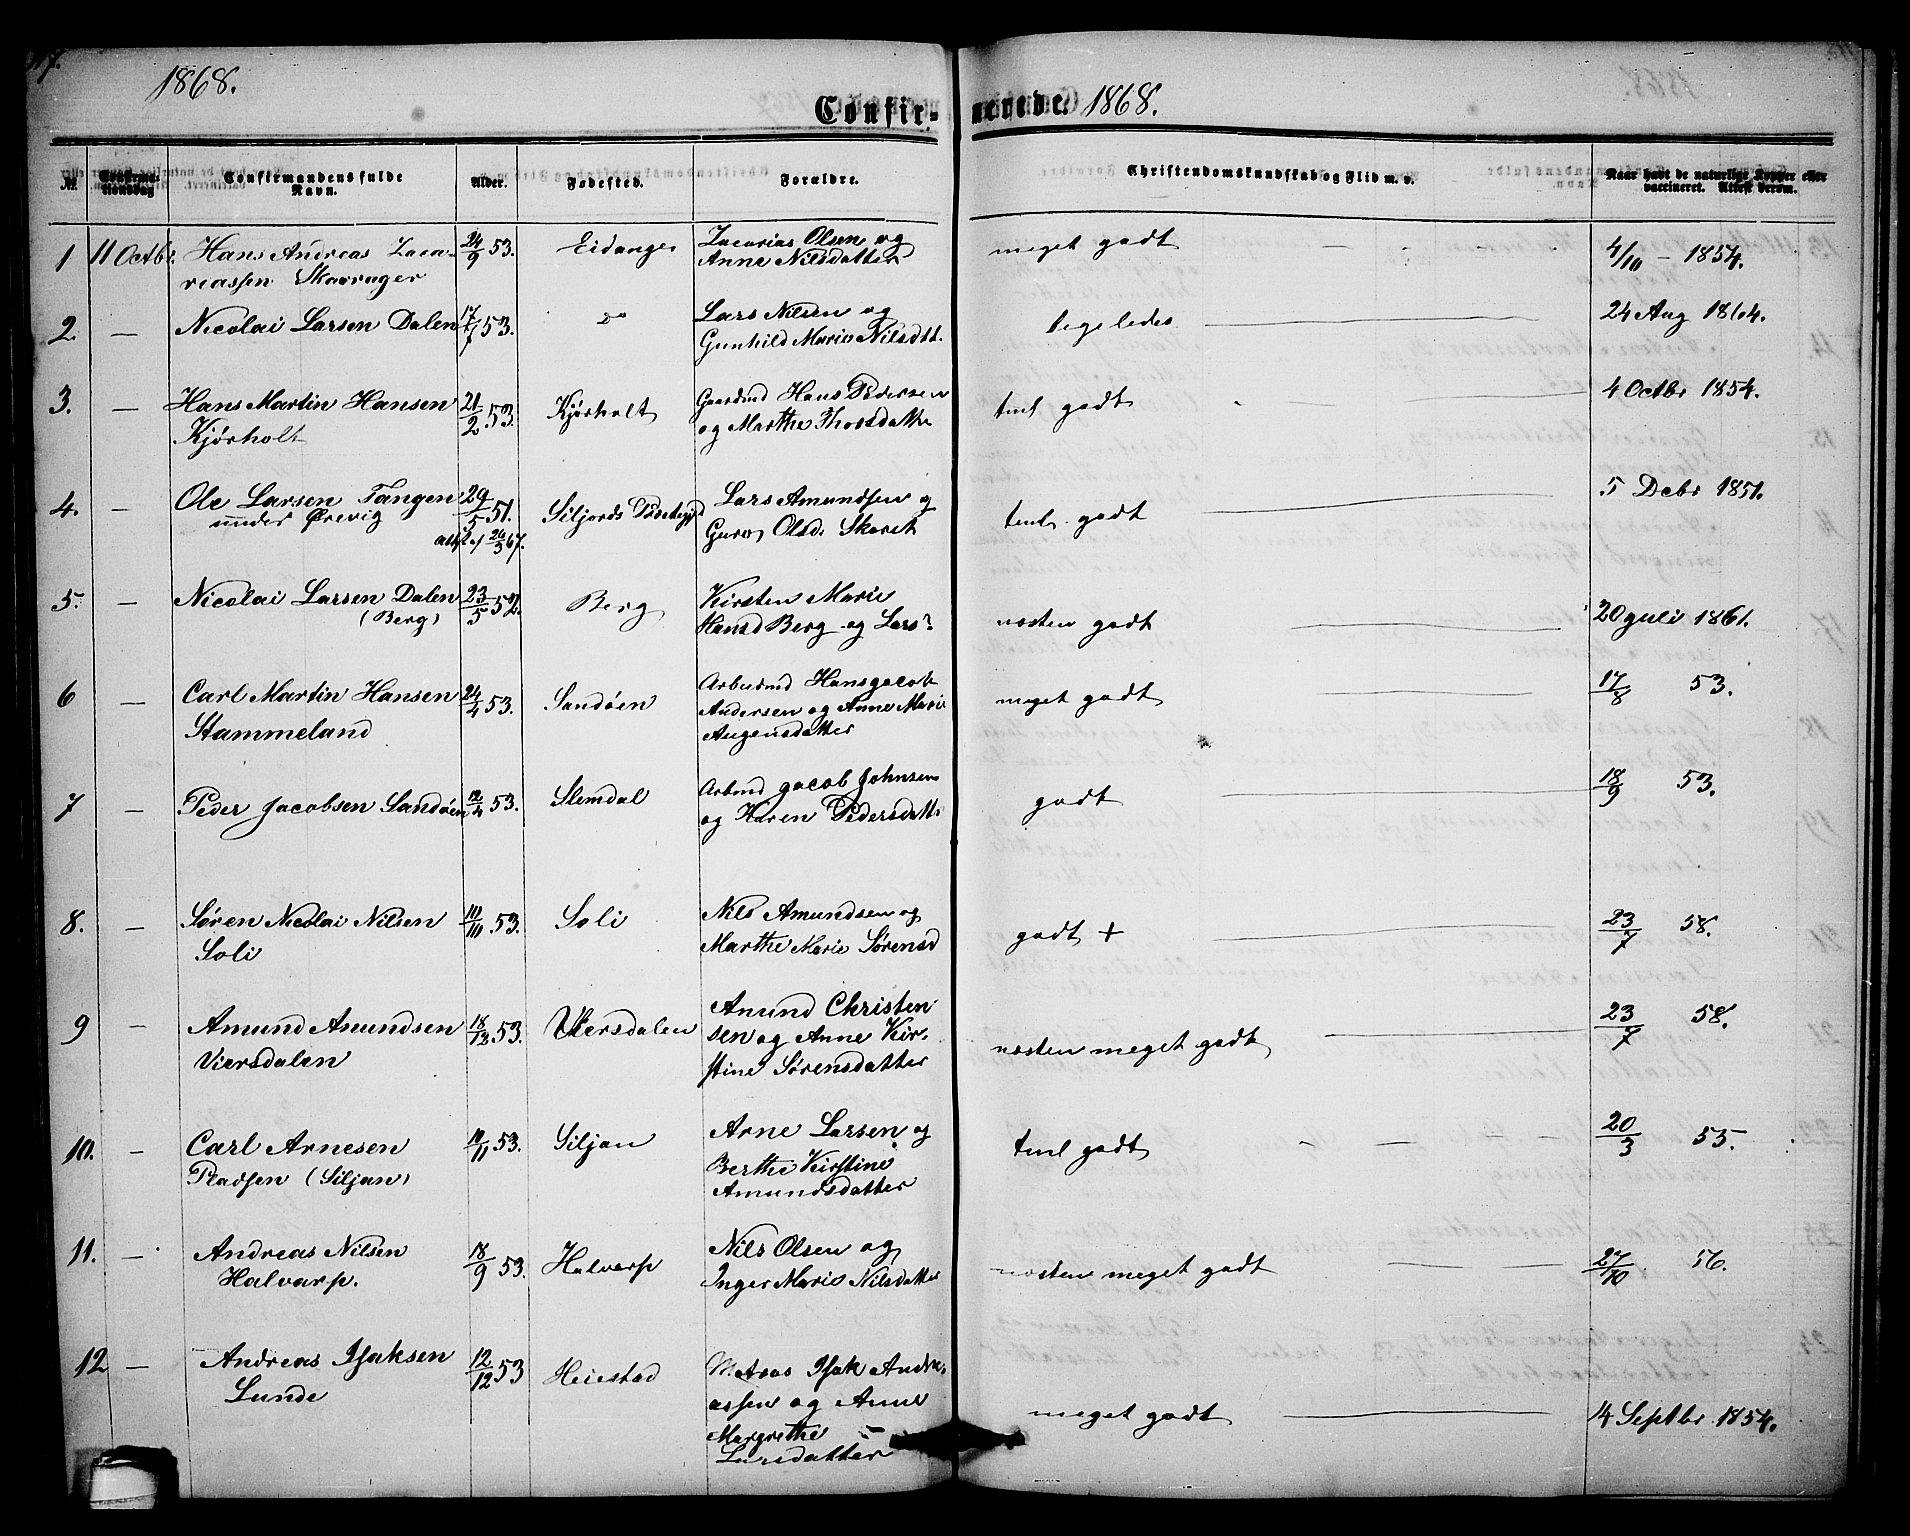 1868.
Confir-
merede. 1868.
№
Confirma-
tionsdag
Confirmandens fulde
Navn.
Alder.
Fødested.
Forældre.
Christendomskundskab og Flid m. v.
Naar havt de naturlige Kopper eller
vaccineret. Attest derom.
1 11 Octbr. Hans Andreas Zaca- 24/9 53. Eidanger Zacarias Olsen og meget godt 4/10 - 1854.
riassen Skavrager Anne Nilsdatter
2. — Nicolai Larsen Dalen 17/7 53. Do Lars Nilsen og ligeledes 24 Aug 1864.
Gunhild Marie Nilsdtt.
3. — Hans Martin Hansen 21/2 53. Kjørholt Gaardmd Hans Pedersen teml godt 4 Octbr 1854.
Kjørholt og Marthe Thorsdatter
4. — Ole Larsen Tangen 29/5 51. Siljords Lars Amundsen og teml. godt 5 Debr 1851.
under Ørevig Guro Olsd. Skaret
26/3 67.
5. — Nicolai Larsen Dalen 23/5 52. Berg Kirsten Marie næsten godt 20 Juli 1861.
(Berg) Hansd Berg og Lars
6 — Carl Martin Hansen 24/4 53. Sandøen Arbeidsmd Hans Jacob meget godt 17/8 53.
Stammeland Andersen og Anne Marie
Augensdatter
7 — Peder Jacobsen Sandøen 12/4 53. Slemdal Arbmd Jacob Johnsen godt 18/9 53.
og Karen Pedersdatter
8. — Søren Nicolai Nilsen 10/10 53. Soli Nils Amundsen og godt + 23/7 58.
Soli Marthe Marie Sørensd
9 — Amund Amundsen 18/12 53. Viersdalen Amund Christen 23/7 58.
Viersdalen sen og Anne Kir- næsten meget godt
stine Sørensdatter
10. — Carl Arnesen 11/11 53. Siljan Arne Larsen og teml godt 20/3 55.
Pladsen (Siljan) Berthe Kirstine
Amundsdatter
11. — Andreas Nilsen 18/9 53. Halvarp Nils Olsen og næsten meget godt 27/10 56.
Halvarp. Inger Marie Nilsdatter
12 — Andreas Isaksen 12/12 53 Heiestad Isak Andre-
Lunde assen og Anne meget godt 14 Septbr 1854.
Margrethe
Larsdatter